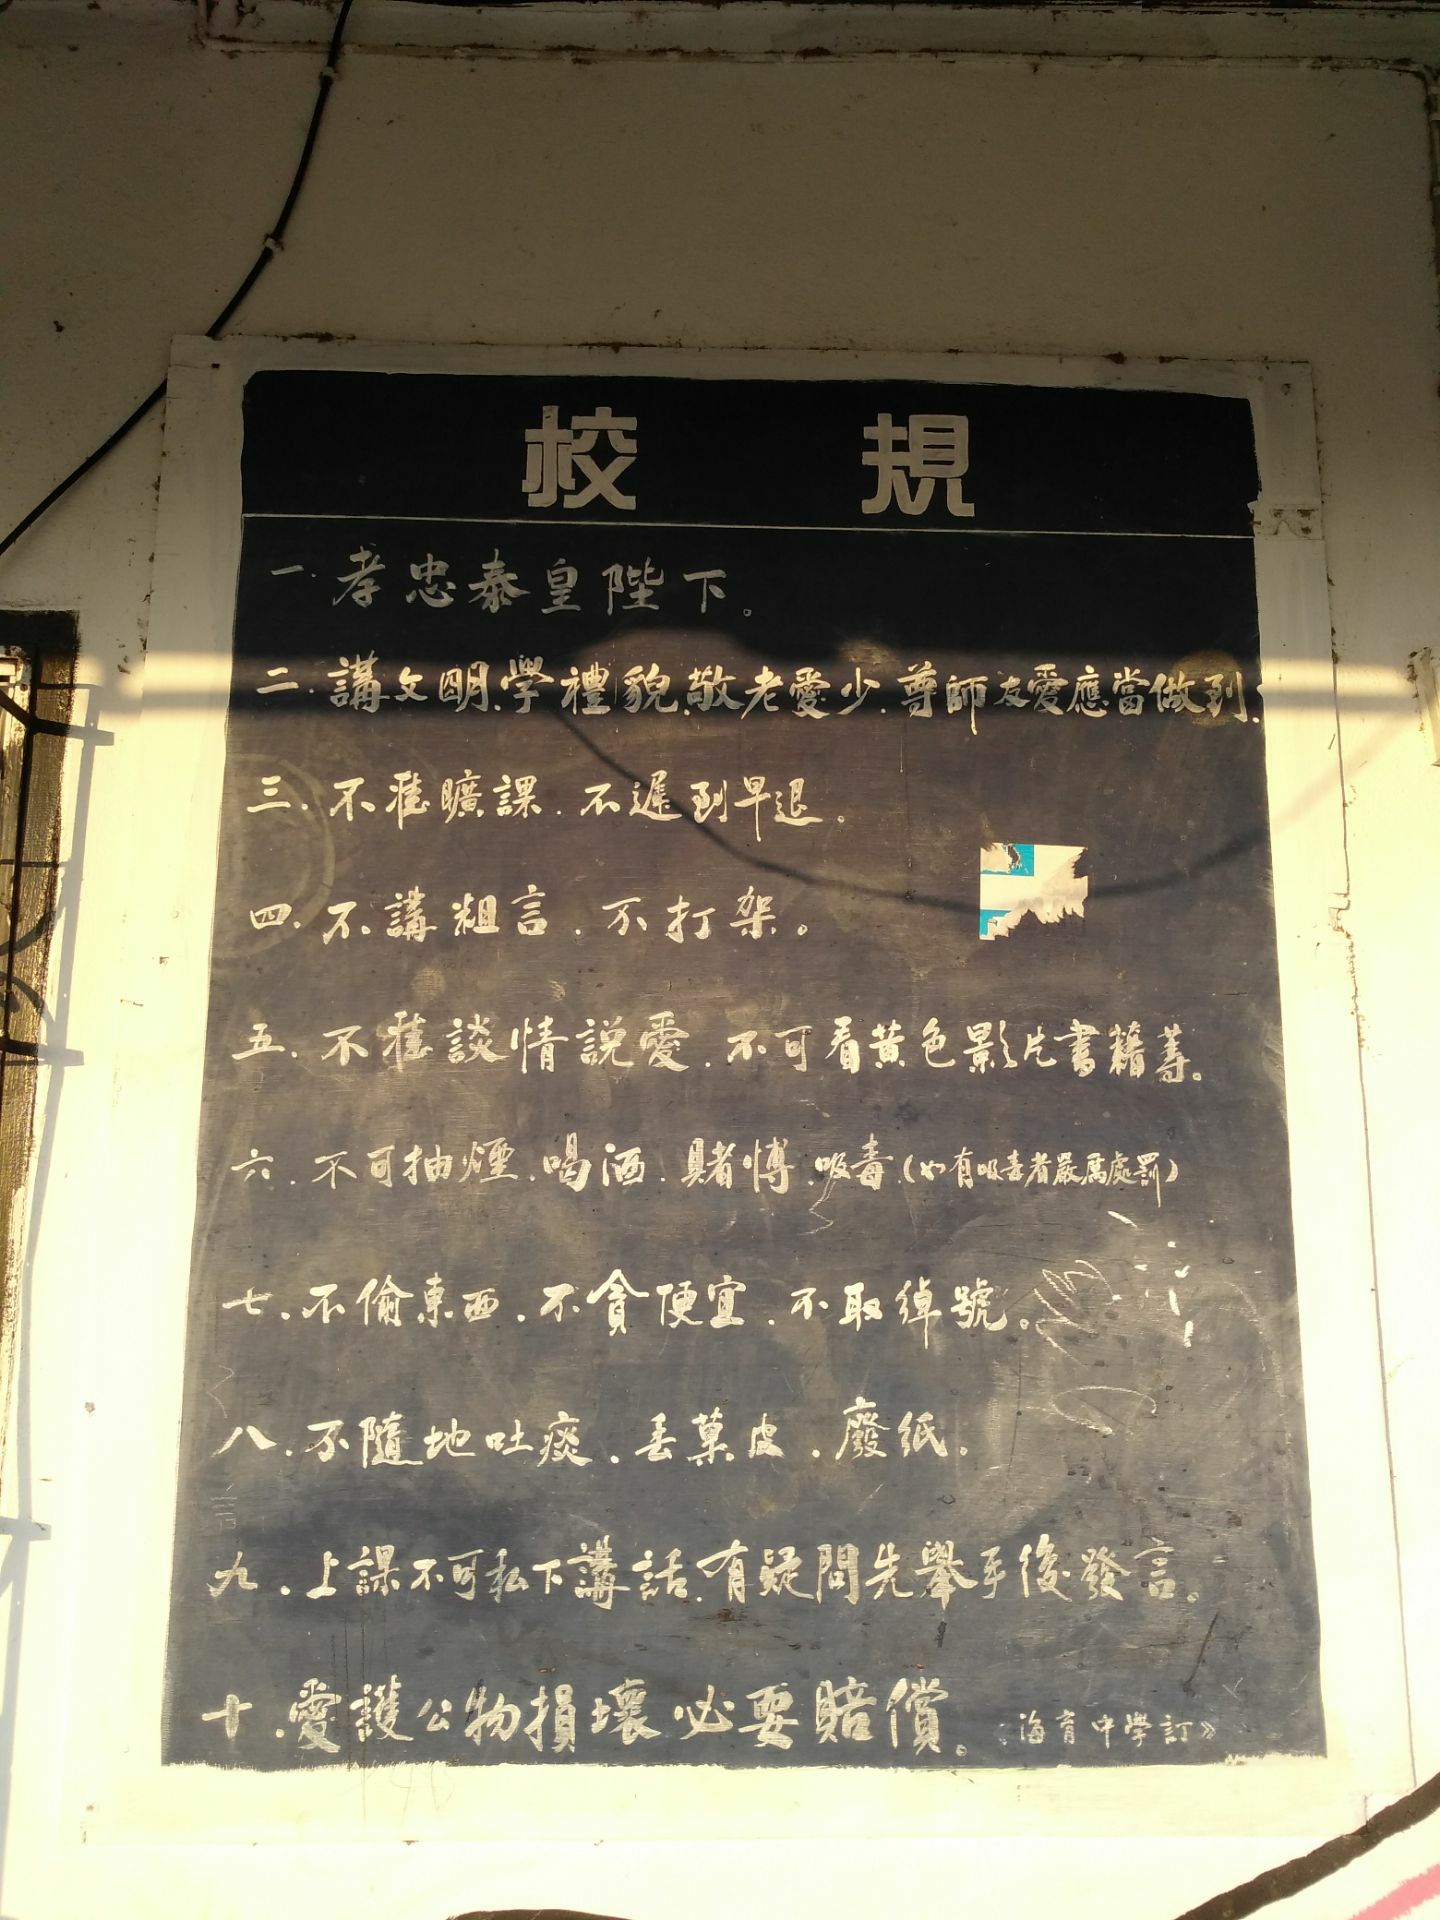 校規
一.孝忠泰皇陛下。
二.講文明.學禮貌.敬老愛少.尊師友愛應當做到.
三.不准曠課.不遲到早退。
四.不講粗言.不打架。
五.不准談情説愛.不可看黃色影片書藉等。
六.不可抽煙.喝酒.賭博.吸毒.(如有吸毒者嚴厲處罰)
七.不偷東西.不貪便宜.不取綽號。
八.不隨地吐痰.丟菓皮.廢紙.
九.上課不可私下講話.有疑問先舉手後發言。
十.愛護公物損壞必要賠償。
《海育中學訂》